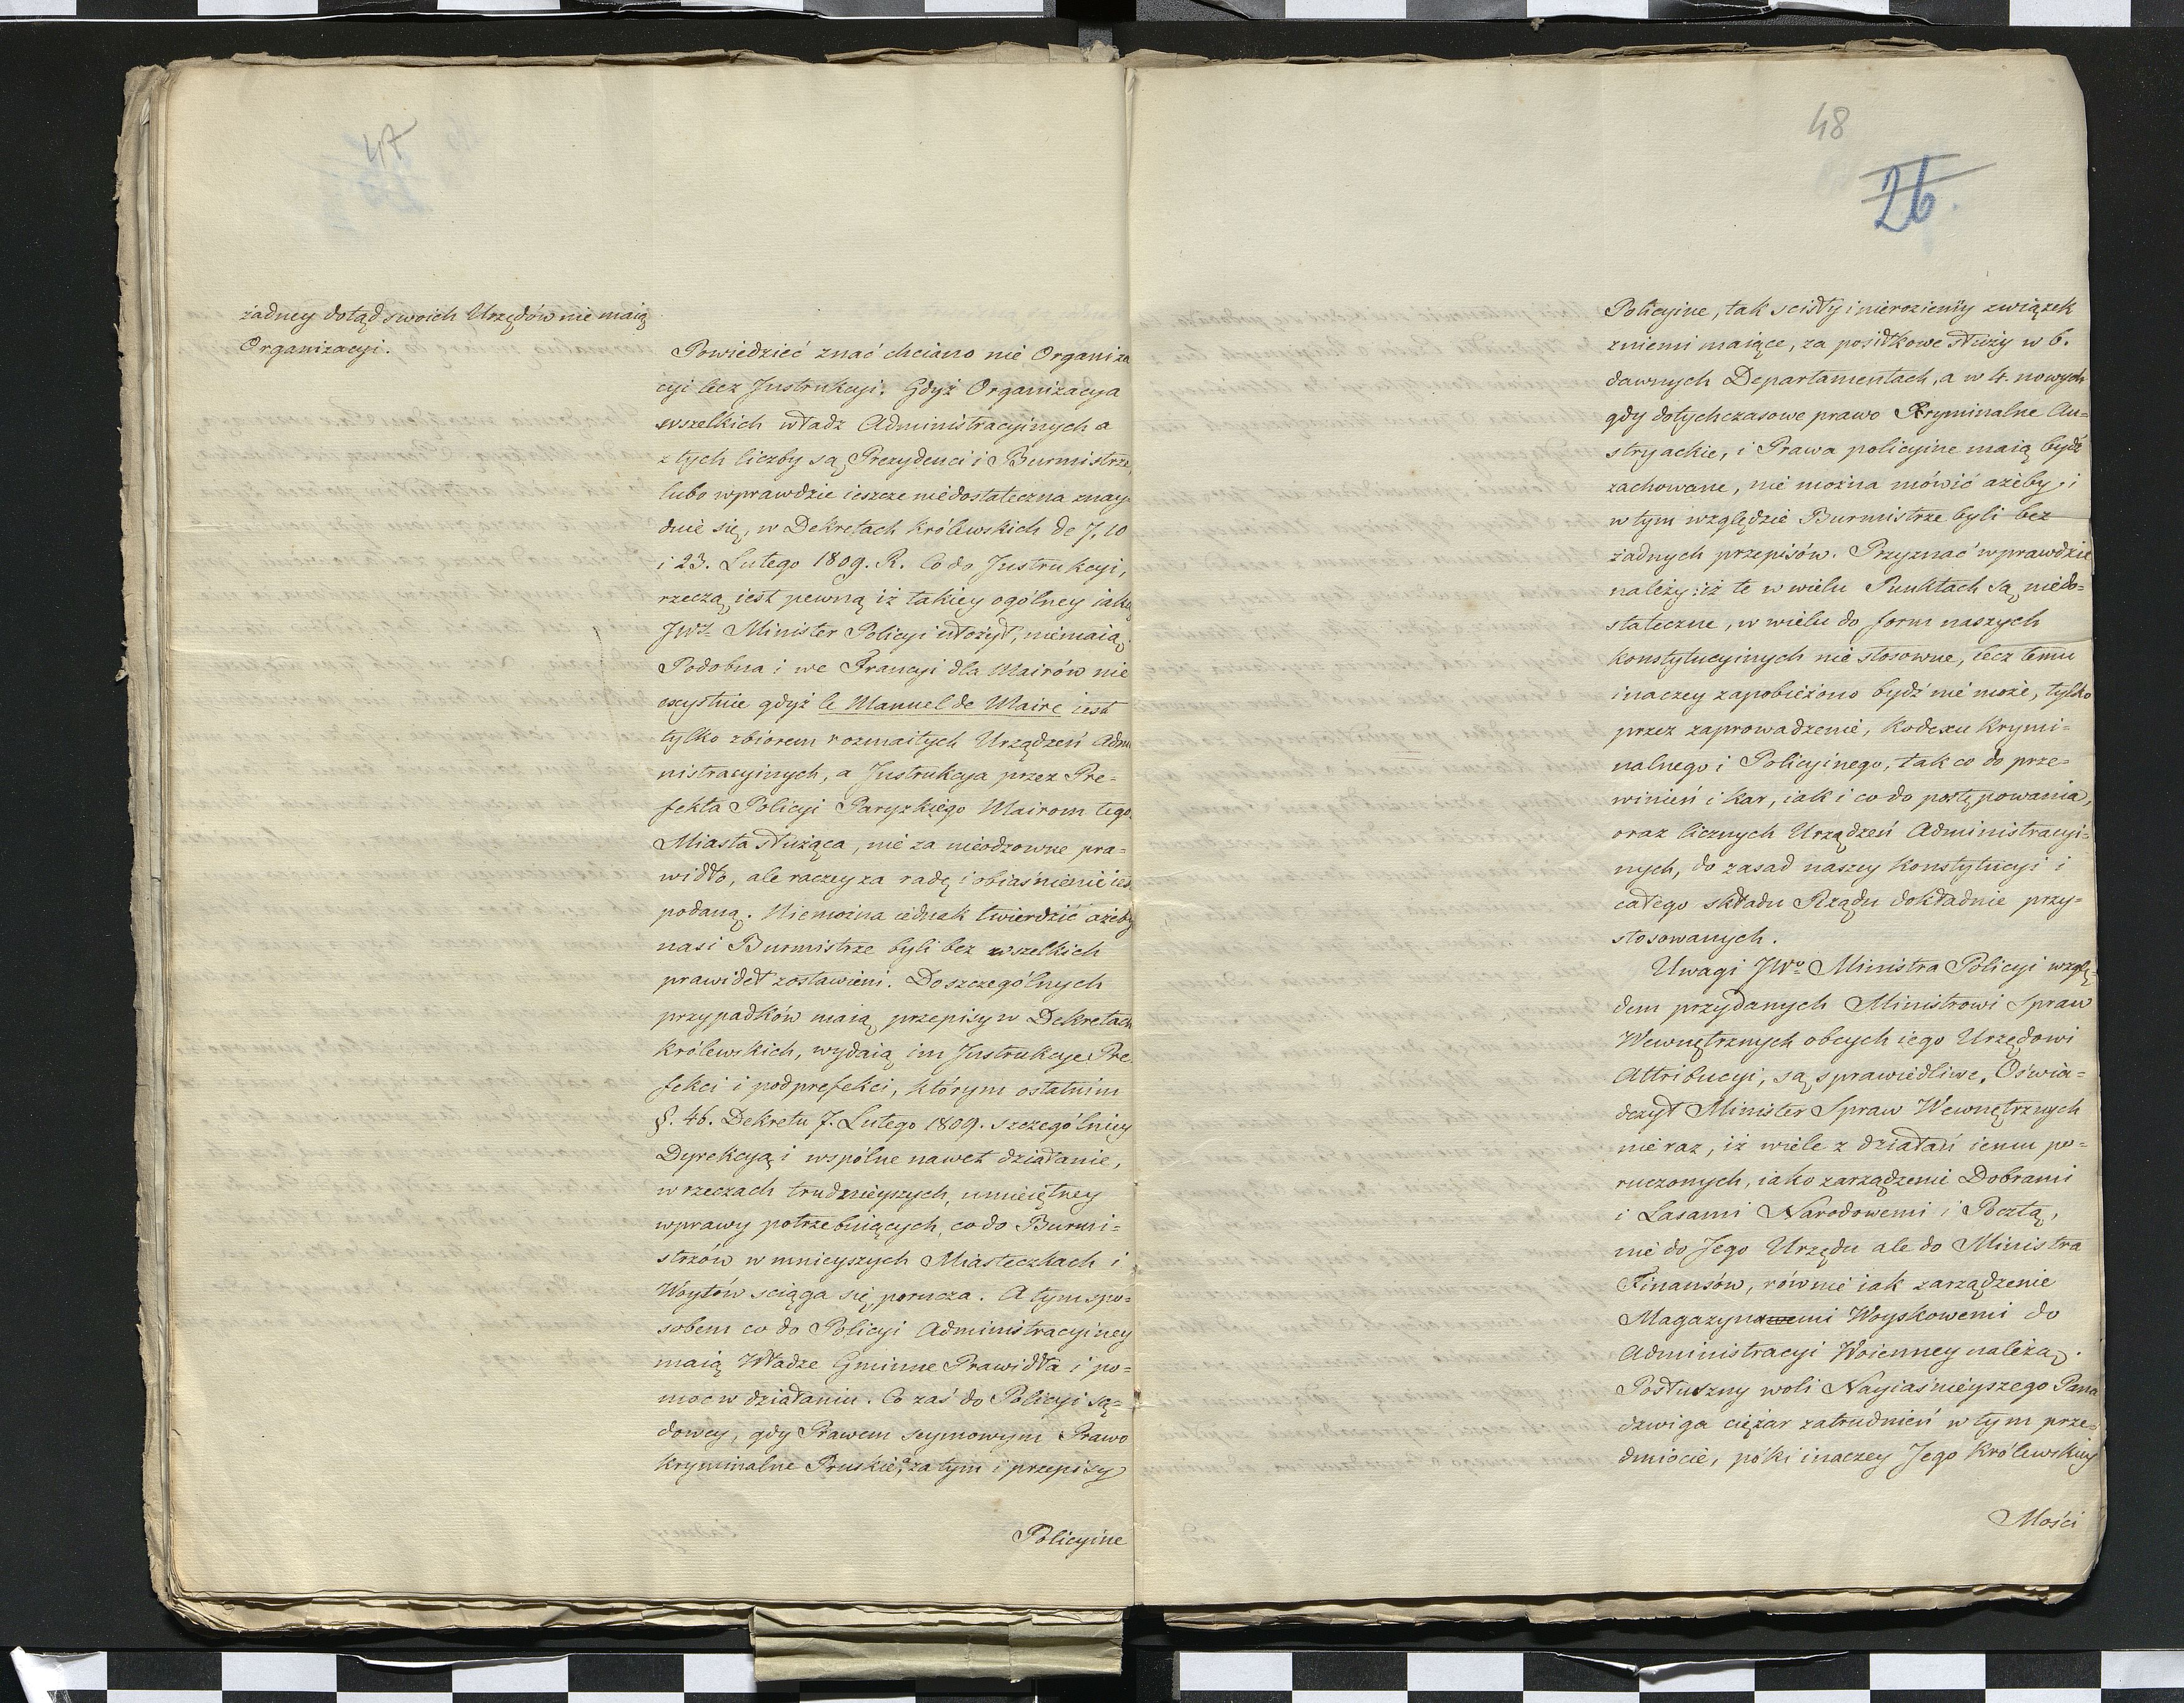 47
żadney dotąd swoich Urzędów nie maią
Organizacyi.
Powiedzieć znać chciano nie Organiza
cyi lecz Instrukcyi. Gdyż Organizacya
wszelkich władz Administracyinych a
z tych liczby są Prezydenci i Burmistrze
lubo wprawdzie ieszcze niedostateczna znay
duie się, w Dekretach Królewskich de 7. 10
i 23. Lutego 1809. R. Co do Instrukcyi,
rzeczą iest pewną iż takiey ogólney iaką
JWy Minister Policyi ułożył, niemaią.
Podobna i we Francyi dla Mairów nie
exystuie gdyż le Manuel de Maire iest
tylko zbiorem rozmaitych Urządzeń Admi
nistracyinych, a Instrukcya przez Pre-
fekta Policyi Paryzkiego Mairom tego
Miasta służąca, nie za nieodzowne pra-
widło, ale raczey za radę i obiaśnienie iest
podaną. Niemożna iednak twierdzić ażeby
nasi Burmistrze byli bez wszelkich
prawideł zostawieni. Do szczególnych
przypadków maią przepisy w Dekretach
Królewskich, wydaią im Instrukcye Pre
fekci i podprefekci, którym ostatnim
§. 46. Dekretu 7. Lutego 1809. szczególniey
Dyrekcyą i wspólne nawet działanie,
w rzeczach trudnieyszych, umieiętney
wprawy potrzebuiących, co do Burmi-
strzów w mnieyszych Miasteczkach i
Woytów sciąga się, porucza. A tym spo-
sobem co do Policyi Administracyiney
maią Władze Gminne Prawidła i po-
moc w działaniu. Co zaś do Policyi Są-
dowey, gdy Prawem Seymowym Prawo
Kryminalne Pruskie, a zatym i przepisy
Policyine
48
26.
Policyine, tak scisły i nierozienny związek
zniemi maiące, za posiłkowe służy w 6.
dawnych Departamentach, a w 4. nowych
gdy dotychczasowe prawo Kryminalne Au-
stryackie, i Prawa policyine maią bydź
zachowane, nie można mówić ażeby i
w tym względzie Burmistrze byli bez
żadnych przepisów. Przyznać wprawdzie
należy iż te w wielu Punktach są niedo-
stateczne, w wielu do form naszych
Konstytucyinych nie stosowne, lecz temu
inaczey zapobieżono bydź nie może, tylko
przez zaprowadzenie, Kodexu Krymi-
nalnego i Policyinego, tak co do prze-
winień i kar, iak i co do postępowania,
oraz licznych Urządzeń Administracyi-
nych, do zasad naszey Konstytucyi i
całego składu Rządu dokładnie przy-
stosowanych.
Uwagi JWo Ministra Policyi wzglę-
dem przydanych Ministrowi Spraw
Wewnętrznych obcych iego Urzędowi
Attribucyi, są sprawiedliwe. Oświa-
dczył Minister Spraw Wewnętrznych
nie raz, iż wiele z działań iemu po-
ruczonych, iako zarządzenie Dobrami
i Lasami Narodowemi i Pocztą,
nie do Jego Urzędu ale do Ministra
Finansów, równie iak zarządzenie
Magazynami Woyskowemi do
Administracyi Woienney należą.
Posłuszny woli Nayiaśnieyszego Pana
dzwiga ciężar zatrudnień w tym prze-
dmiocie, póki inaczey Jego Królewskiey
Mości